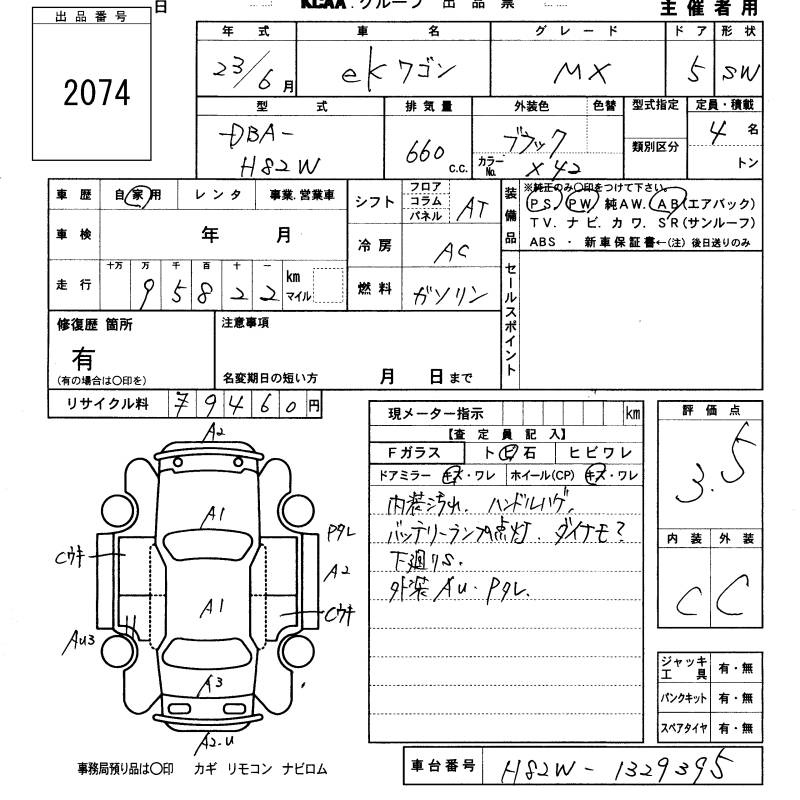 日 KCAA.グループ 出品票 主催者用
出品番号
2074
年式 車名 グレード ドア 形状
23/6月 eKワゴン MX 5 SW
型式 排気量 外装色 色替 型式指定 定員・積載
DBA-
H82W
660 c.c.
ブラック
カラーNo. X42
類別区分
4 名
トン
車歴 自家用 レンタ 事業.営業車
車検 年 月
走行 十万 万 千 百 十 一
9 5 8 2 2 km マイル
シフト フロア コラム パネル AT
冷房 AC
燃料 ガソリン
装備品
※純正のみ〇印をつけて下さい。
PS. PW 純AW. AB(エアバック)
TV. ナビ. カワ. SR(サンルーフ)
ABS ・ 新車保証書←(注) 後日送りのみ
セールスポイント
修復歴 箇所
有
(有の場合は〇印を)
注意事項
名変期日の短い方 月 日まで
リサイクル料 79460円
現メーター指示 km
【査定員記入】
Fガラス ト飛石 ヒビワレ
ドアミラー キズ・ワレ ホイール(CP) キズ・ワレ
内装汚れ. ハンドルハゲ.
バッテリーランプ点灯. ダイナモ?
下廻りS.
外装 AU. Pタレ.
評価点
3.5
内装 外装
C C
ジャッキ工具 有・無
パンクキット 有・無
スペアタイヤ 有・無
A2
A1
Pタレ
Cウキ
A2
A1
Cウキ
AU3
A3
A2-U
事務局預り品は〇印 カギ リモコン ナビロム
車台番号 H82W-1329395